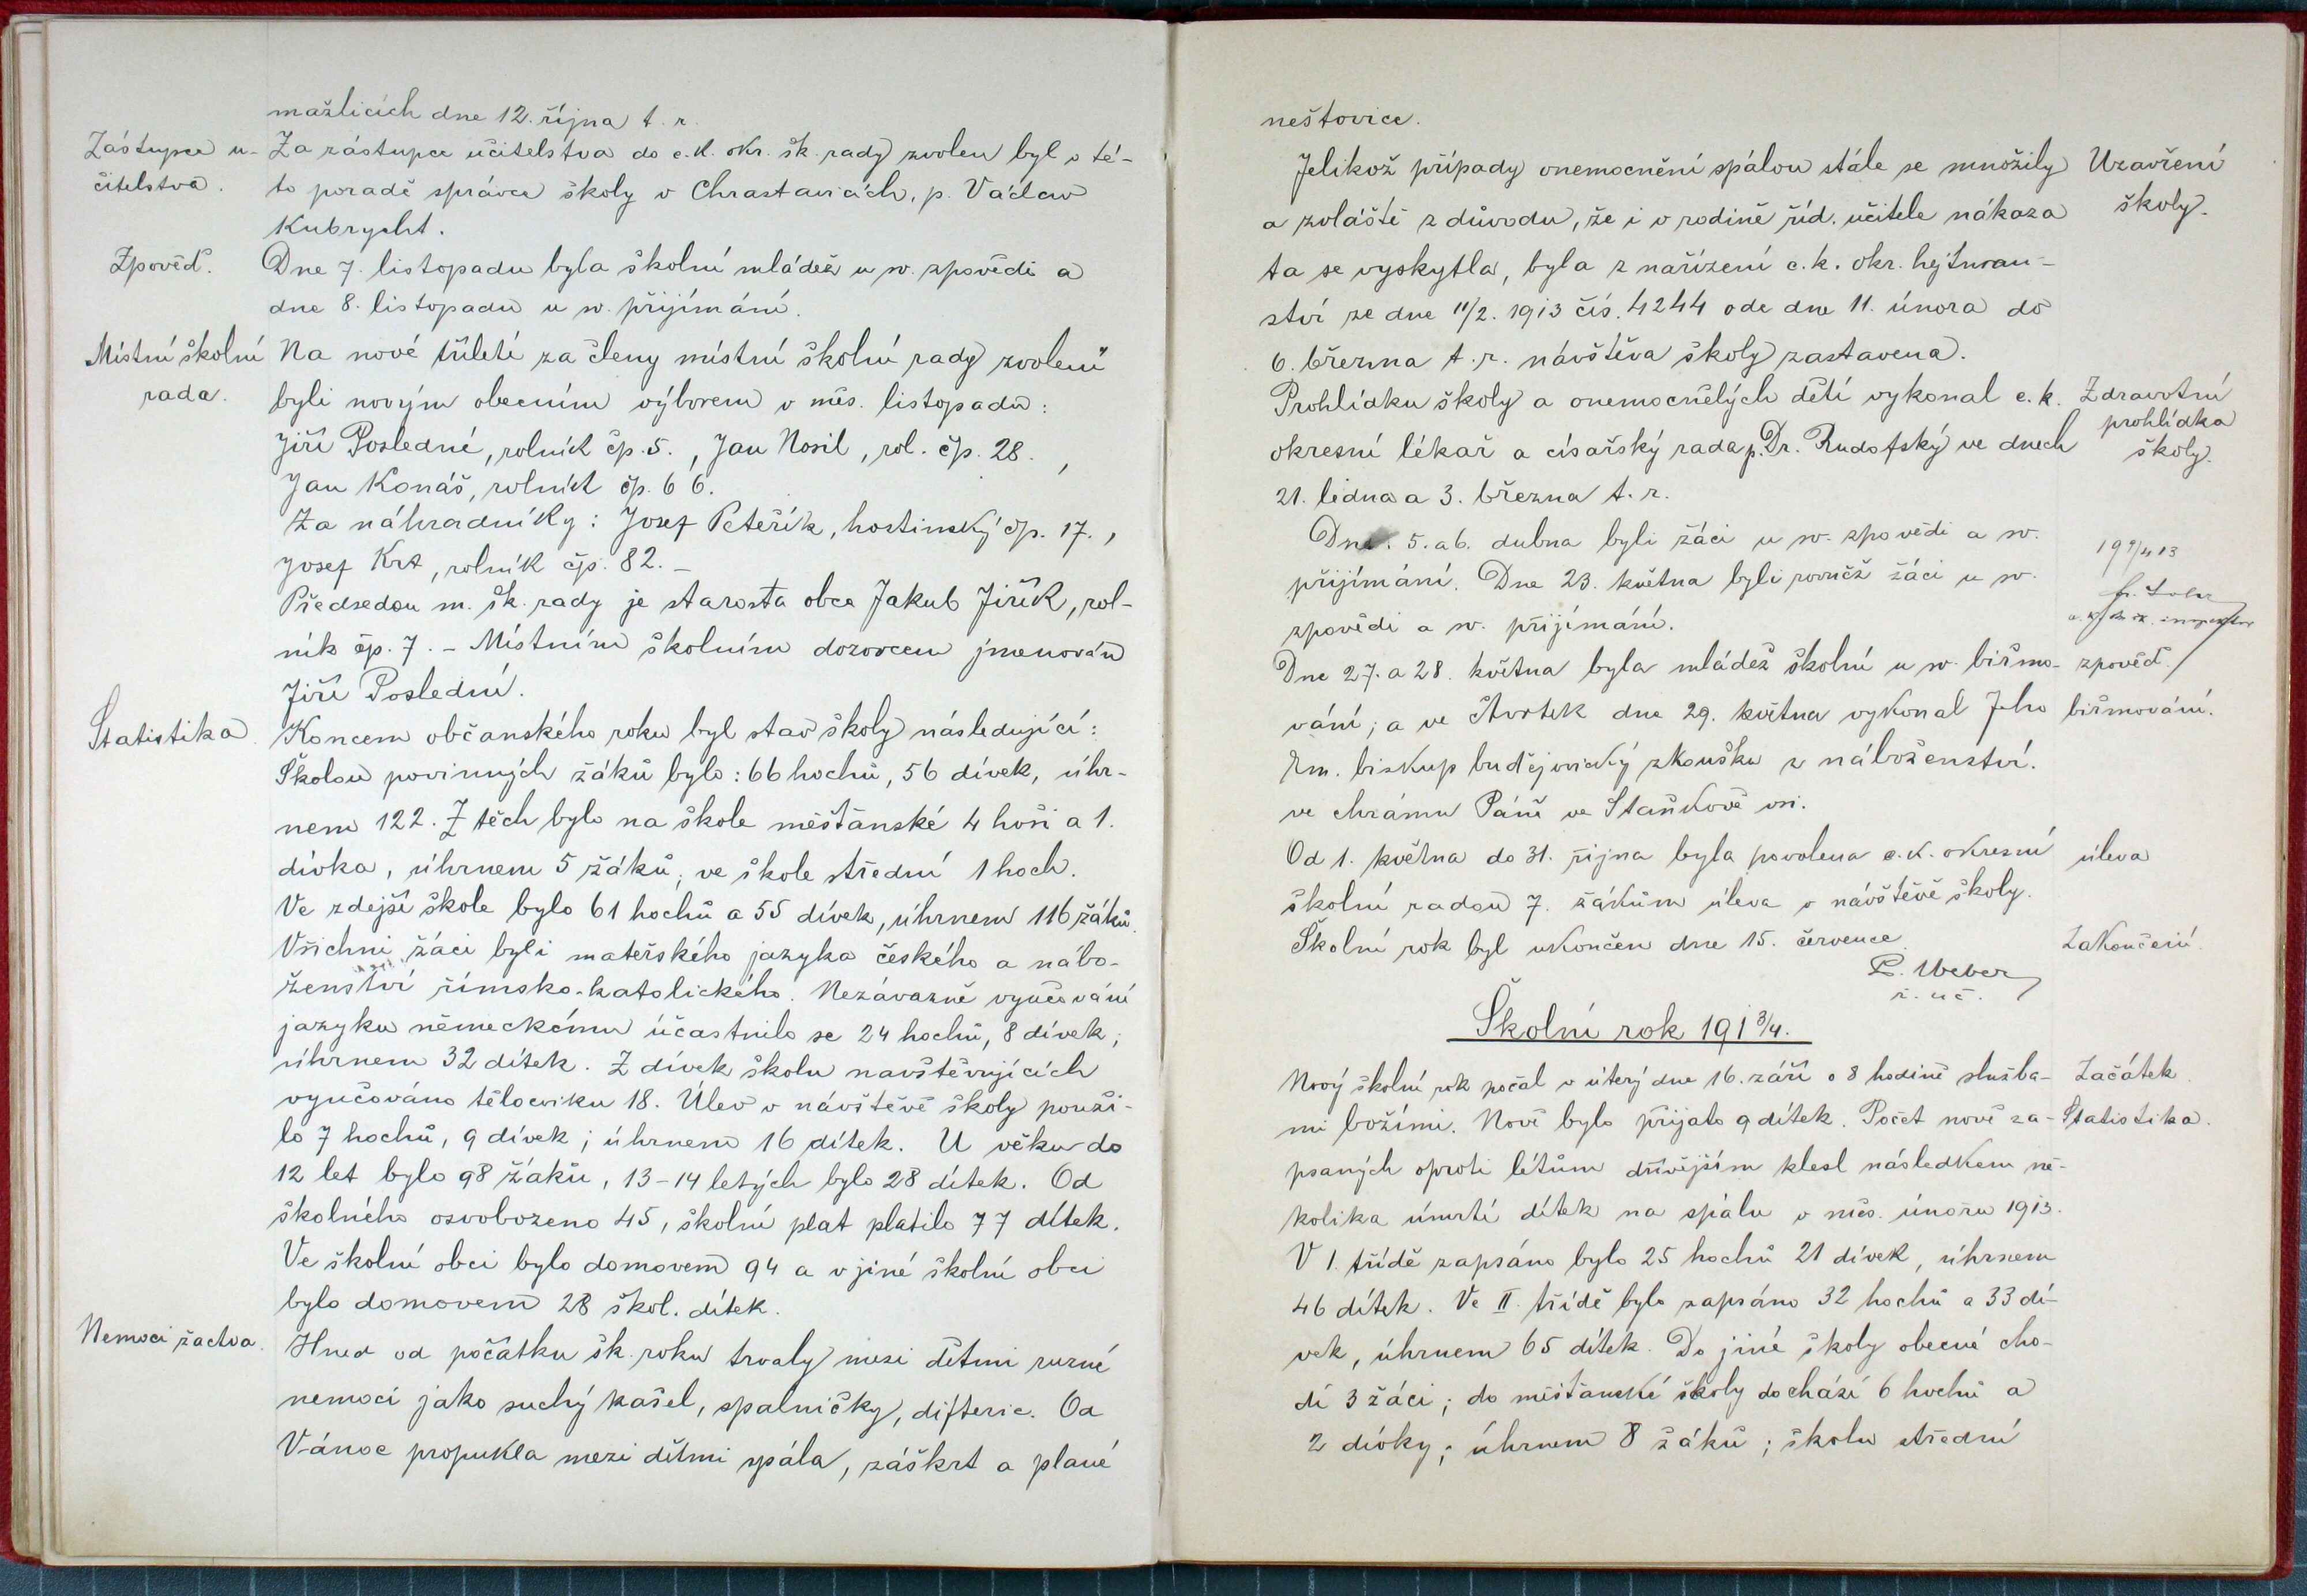 mažlicích dne 12. října t. r.
Zástupce u-
čitelstva.
Za zástupce učitelstva do c. k. okr. šk. rady zvolen byl v té-
to poradě správce školy v Chrastavicích, p. Václav
Kubrycht.
Zpověď.
Dne 7. listopadu byla školní mládež u sv. zpovědi a
dne 8. listopadu u sv. přijímání.
Místní školní
rada.
Na nové tříletí za členy místní školní rady zvoleni
byli novým obecním výborem v měs. listopadu:
Jiří Poslední, rolník čp. 5., Jan Nosil, rol. čp. 28.,
Jan Konáš, rolník čp. 66.
Za náhradníky: Josef Peteřík, hostinský čp. 17.,
Josef Krt, rolník čp. 82. –
Předsedou m. šk. rady je starosta obce Jakub Jiřík, rol-
ník čp. 7. – Místním školním dozorcem jmenován
Jiří Poslední.
Statistika.
Koncem občanského roku byl stav školy následující:
Školou povinných žáků bylo: 66 hochů, 56 dívek, úhr-
nem 122. Z těch bylo na škole měšťanské 4 hoši a 1.
dívka, úhrnem 5 žáků; ve škole střední 1 hoch.
Ve zdejší škole bylo 61 hochů a 55 dívek, úhrnem 116 žáků.
Všichni žáci byli mateřského jazyka českého a nábo-
ženství římsko-katolického. Nezávazně vyučování
jazyku německému účastnilo se 24 hochů, 8 dívek;
úhrnem 32 dítek. Z dívek školu navštěvujících
vyučováno tělocviku 18. Úlev v návštěvě školy použi-
lo 7 hochů, 9 dívek; úhrnem 16 dítek. U věku do
12 let bylo 98 žáků, 13-14 letých bylo 28 dítek. Od
školného osvobozeno 45, školní plat platilo 77 dítek.
Ve školní obci bylo domovem 94 a v jiné školní obci
bylo domovem 28 škol. dítek.
Nemoci žactva.
Hned od počátku šk. roku trvaly mezi dětmi ruzné
nemoci jako suchý kašel, spalničky, difterie. Od
Vánoc propukla mezi dětmi spála, záškrt a plané
neštovice.
Jelikož případy onemocnění spálou stále se množily
a zvláště z důvodu, že i v rodině říd. učitele nákaza
ta se vyskytla, byla z nařízení c. k. okr. hejtman-
ství ze dne 11/2. 1913 čís. 4244 ode dne 11. února do
6. března t. r. návštěva školy zastavena.
Uzavření
školy.
Prohlídku školy a onemocnělých dětí vykonal c. k.
okresní lékař a císařský rada p. Dr. Rudofský ve dnech
21. ledna a 3. března t. r.
Zdravotní
prohlídka
školy.
Dne. 5. a 6. dubna byli žáci u sv. zpovědi a sv.
přijímání. Dne 23. května byli rovněž žáci u sv.
zpovědi a sv. přijímání.
19 9/4 13
Dne 27. a 28. května byla mládež školní u sv. biřmo-
vání; a ve čtvrtek dne 29. května vykonal Jeho
Em. biskup budějovický zkoušku z náboženství.
ve chrámu Páně ve Staňkově vsi.
zpověď.
biřmování.
Od 1. května do 31. října byla povolena c. k. okresní
školní radou 7. žákům úleva v návštěvě školy.
úleva
Školní rok byl ukončen dne 15. července.
Zakončení.
P. Weber
ř. uč.
Školní rok 191 3/4.
Nový školní rok počal v úterý dne 16. září o 8 hodině služba-
mi božími. Nově bylo přijato 9 dítek. Počet nově za-
psaných oproti létům dřívějším klesl následkem ně-
kolika úmrtí dítek na spálu v měs. únoru 1913.
V 1. třídě zapsáno bylo 25 hochů 21 dívek, úhrnem
46 dítek. Ve II. třídě bylo zapsáno 32 hochů a 33 dí-
vek, úhrnem 65 dítek. Do jiné školy obecné cho-
dí 3 žáci; do měšťanské školy dochází 6 hochů a
2 dívky; úhrnem 8 žáků; školu střední
Začátek.
Statistika.